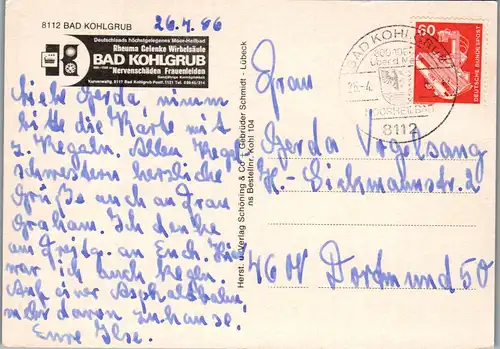 8112 BAD KOHLGRUB
26.4.86
Deutschlands höchstgelegenes Moor-Heilbad
Rheuma Gelenke Wirbelsäule
BAD KOHLGRUB
Nervenschäden Frauenleiden
Ganzjährige Kurmöglichkeit
Kurverwaltg. 8112 Bad Kohlgrub Postf.
Liebe Gerda, nimm
bitte die Karte mit
z. Kegeln. Allen Kegel-
schwestern herzliche
Grüße auch an Frau
Graham. Ich denke
am Freitg. an Euch. Hier
war ich auch kegeln.
Auf einer Asphaltbahn
mehr davon zuhause!
Eure Ilse.
Herst. u. Verlag Schöning & Co + Gebrüder Schmidt - Lübeck
ns Bestellnr. Kohl 104
BAD KOHLGRUB
MOORHEILBAD
8112
60
DEUTSCHE BUNDESPOST
Frau
Gerda Vogelsang
H.-Sickmannstr. 2
4600 Dortmund 50